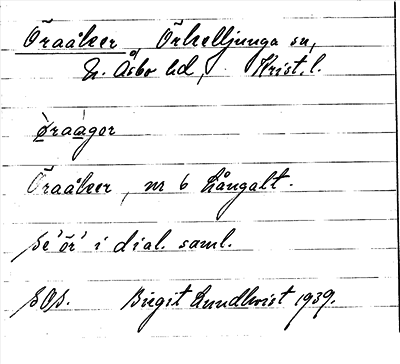 Öraåker, Örkelljunga sn,
N. Åsbo hd, Krist. l.
øraagər
Öraåker, nr 6 Långalt.
se 'ör' i dial. saml.
SOS. Birgit Lundkvist 1939.